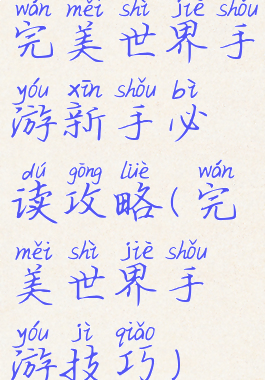 wán měi shì jiē shǒu
完美世界手
yóu xīn shǒu bì
游新手必
dú gōng lüè wán
读攻略(完
měi shì jiē shǒu
美世界手
yóu jì qiǎo
游技巧)